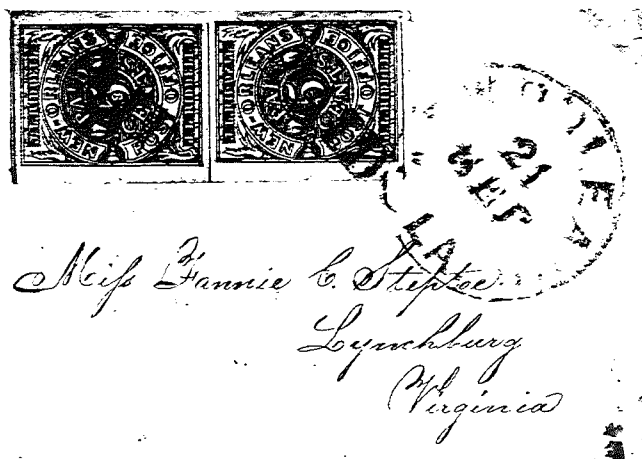 NEW-ORLEANS POST OFFICE
NEW-ORLEANS POST OFFICE
21
SEP
LA
Miſs Fannie C. Steptoe
Lynchburg
Virginia